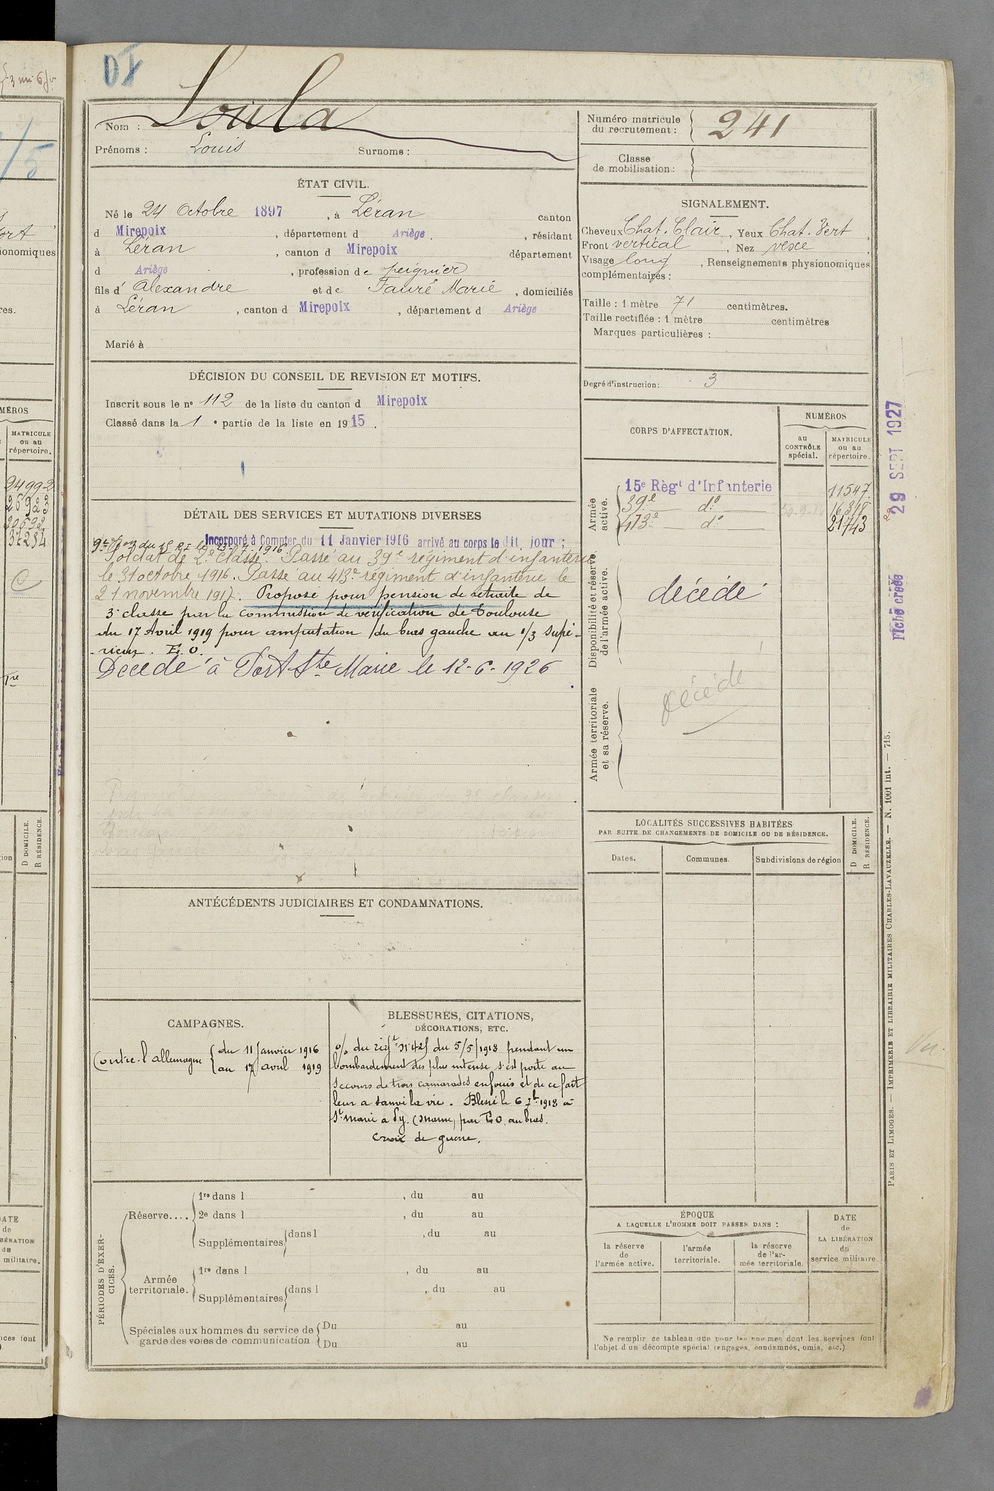 DX
Nom : Soula
Prénoms : Louis Surnoms :
ÉTAT CIVIL.
Né le 24 Octobre 1897, à Léran canton
d Mirepoix, département d Ariège, résidant
à Léran, canton d Mirepoix département
d Ariège, profession de peignier
fils d' Alexandre et de Fauré Marie, domiciliés
à Léran, canton d Mirepoix, département d Ariège
Marié à
DÉCISION DU CONSEIL DE REVISION ET MOTIFS.
Inscrit sous le n° 112 de la liste du canton d Mirepoix
Classé dans la 1 e partie de la liste en 1915.
DÉTAIL DES SERVICES ET MUTATIONS DIVERSES
Incorporé à Compter du 11 Janvier 1916 arrivé au corps le dit jour ;
Soldat de 2e classe. Passé au 39e régiment d'infanterie
le 31 octobre 1916. Passé au 413e régiment d'infanterie le
21 novembre 1917. Proposé pour pension de retraite de
3e classe par la Commission de vérification de Toulouse
du 17 Avril 1919 pour amputation du bras gauche au 1/3 supé-
-rieur. E. O.
Décédé à Port Ste Marie le 12-6-1926
ANTÉCÉDENTS JUDICIAIRES ET CONDAMNATIONS.
CAMPAGNES.
Contre l'allemagne { du 11 Janvier 1916
au 17 avril 1919
BLESSURES, CITATIONS,
DÉCORATIONS, ETC.
du 5/5/1918 pendant un
bombardement des plus intense s'est porté au
secours de trois camarades enfouis et de ce fait
leur a sauvé la vie. Blessé le 6 1918 à
St marie a Py. (Marne) par E. O. au bras.
Croix de guerre.
PÉRIODES D'EXER-
CICES.
Réserve.... { 1re dans l , du au
2e dans l , du au
Supplémentaires { dans l , du au
Armée territoriale. { 1re dans l , du au
Supplémentaires { dans l , du au
Spéciales aux hommes du service de { Du au
garde des voies de communication { Du au
Numéro matricule
du recrutement : { 241
Classe
de mobilisation : {
SIGNALEMENT.
Cheveux Chat. Clair, Yeux Chat. Vert
Front vertical, Nez vexe
Visage long, Renseignements physionomiques
complémentaires :
Taille : 1 mètre 71 centimètres.
Taille rectifiée : 1 mètre centimètres
Marques particulières :
Degré d'instruction : 3
CORPS D'AFFECTATION.
NUMÉROS
au
CONTRÔLE
spécial.
MATRICULE
ou au
répertoire.
Armée
active.
15e Règt d'Infanterie 11547
39e do
413e do 21743
Disponibilité et réserve
de l'armée active.
décédé
Armée territoriale
et sa réserve.
décédé
LOCALITÉS SUCCESSIVES HABITÉES
PAR SUITE DE CHANGEMENTS DE DOMICILE OU DE RÉSIDENCE.
Dates. Communes. Subdivisions de région
D DOMICILE.
R RÉSIDENCE.
ÉPOQUE
A LAQUELLE L'HOMME DOIT PASSER DANS :
la réserve
de
l'armée active.
l'armée
territoriale.
la réserve
de l'ar-
mée territoriale.
DATE
de
LA LIBÉRATION
du
service militaire.
Ne remplir ce tableau que pour les hommes dont les services font
l'objet d'un décompte spécial (engagés, condamnés, omis, etc.)
29 SEPT 1927
Fiche créée
PARIS ET LIMOGES. — IMPRIMERIE ET LIBRAIRIE MILITAIRES CHARLES-LAVAUZELLE. — N. 1001 int. — 715.